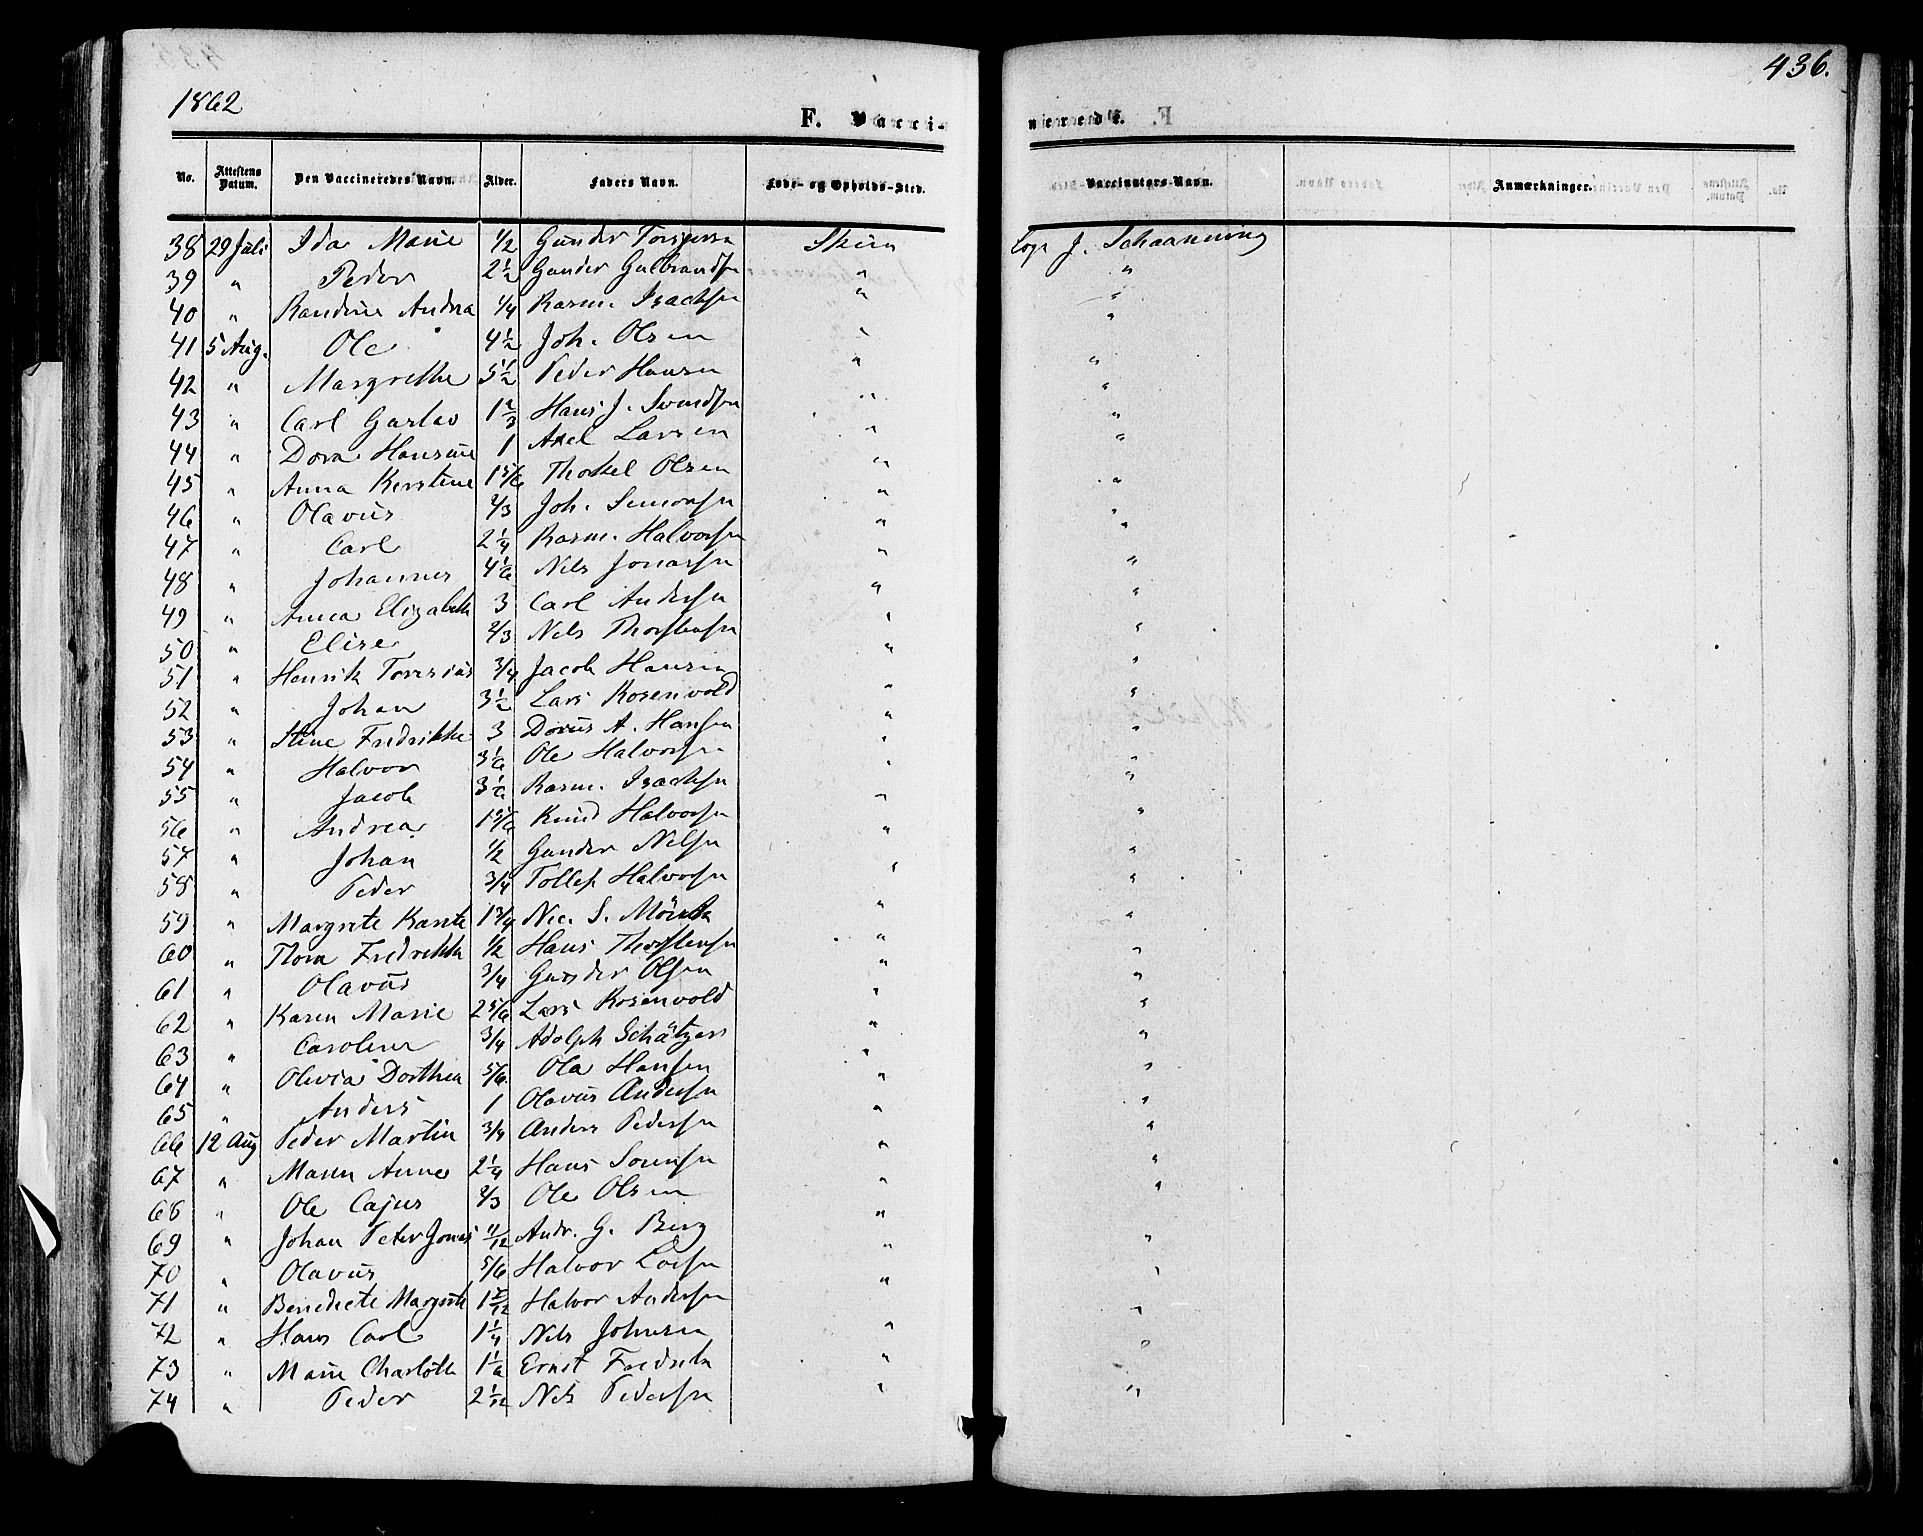 1862
436.
F. Vacci-
nerede.
No. Attestens Datum. Den Vaccineredes Navn. Alder. Faders Navn. Føde- og Opholds-Sted. Vaccinators-Navn. Anmærkninger.
38 29 Juli Ida Marie 1/2 Gunder Torgersen Skien J. Schaanning
39 " Peder 2 1/2 Gunder Gulbrandsn " "
40 " Randine Andrea 1/4 Rasm. Isachsen " "
41 5 Aug. Ole 4 1/2 Joh. Olsen " "
42 " Margrethe 5 1/2 Peder Hansen " "
43 " Carl Gustav 1 2/3 Hans J. Svendsen " "
44 " Dora Hansine 1 Axel Larsen " "
45 " Anna Kerstine 1 5/6 Thorkel Olsen " "
46 " Olavus 2/3 Joh. Simonsen " "
47 " Carl 2 1/4 Rasm. Halvorsen " "
48 " Johannes 4 1/6 Nils Jonassen " "
49 " Anna Elizabeth 3 Carl Andersen " "
50 " Elise 2/3 Nils Thorstensn " "
51 " Henrik 3/4 Jacob Hansen " "
52 " Johan 3 1/2 Lars Rosenvold " "
53 " Stine Fredrikke 3 Dorus A. Hansen " "
54 " Halvor 3 1/6 Ole Halvorsen " "
55 " Jacob 3 1/6 Rasm. Isachsen " "
56 " Andrea 1 5/6 Knud Halvorsen " "
57 " Johan 1/2 Gunder Nilsen " "
58 " Peder 3/4 Tollef Halvorsn " "
59 " Margrete 1 3/4 Nic. S. " "
60 " Thora Fredrikke 1/2 Hans Thorstensn " "
61 " Olavus 3/4 Gunder Olsen " "
62 " Karen Marie 2 5/6 Lars Rosenvold " "
63 " Caroline 3/4 Adolph " "
64 " Olivia Dorthea 5/6 Ola Hansen " "
65 " Anders 1 Olavus Andersn " "
66 12 Aug Peder Martin 3/4 Anders Pedersen " "
67 " Maren Anne 2 1/4 Hans Sørensn " "
68 " Ole Cajus 2/3 Ole Olsen " "
69 " Johan Peter Jonas 11/12 Andr. G. Berg " "
70 " Olavus 5/6 Halvor " "
71 " Benedicte Margrete Halvor Andersen " "
72 " Hans Carl 1 1/4 Nils Johnsen " "
73 " Marie Charlotte 1 1/6 Ernst " "
74 " Peder 2 1/12 Nils Pedersen " "